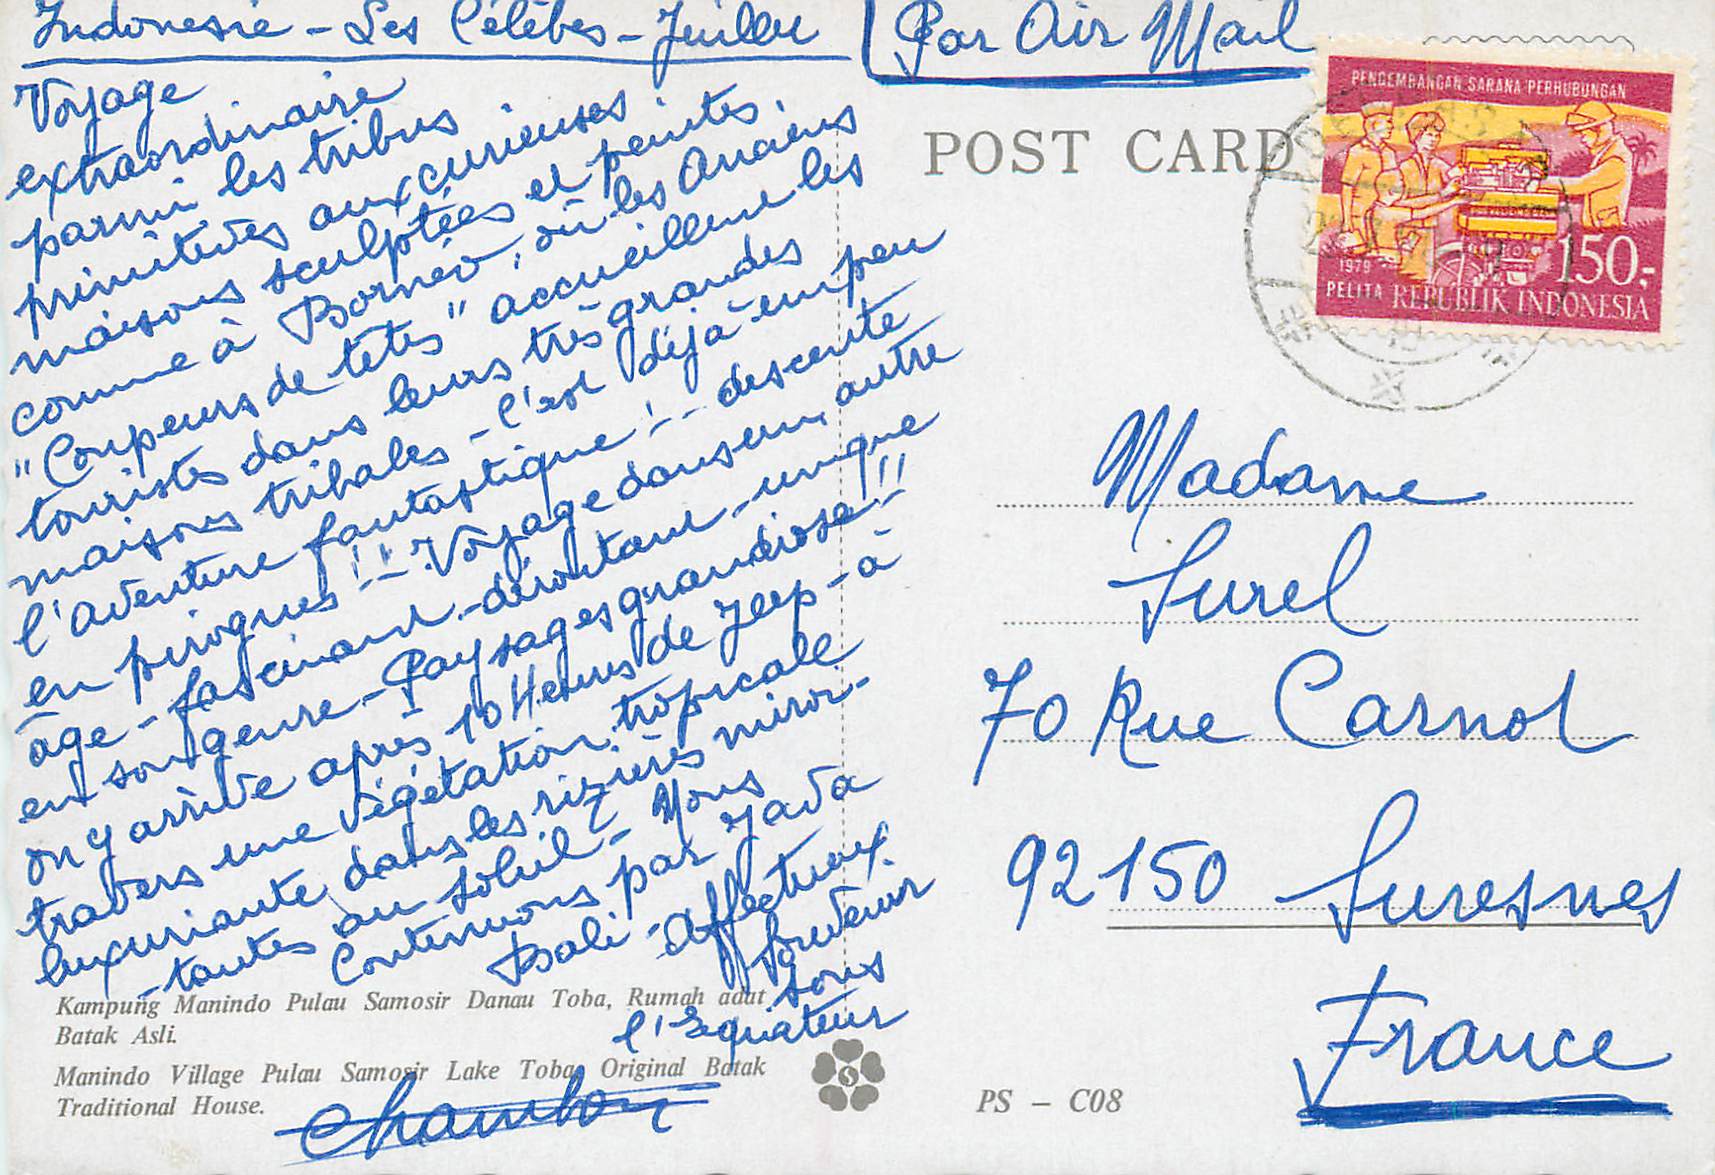 Indonesie - Les Célèbes - Juillet
Voyage
extraordinaire
parmi les tribus
primitives aux curieuses
maisons sculptées et peintes,
comme à Bornéo, où les Anciens
"Coupeurs de têtes" accueillent les
touristes dans leurs très grandes
maisons tribales - c'est déjà un peu
l'aventure fantastique! - descente
en pirogues!!! - Voyage dans un autre
âge - fascinant - déroutant - unique
en son genre - Paysages grandiose!!!
on y arrive après 10 Heures de Jeep - à
travers une végétation tropicale
luxuriante dans les rizières miroi-
-tantes au soleil - Nous
Continuons par Java
Bali - Affectueux
Souvenir
sous
l'Equateur
Par Air Mail
POST CARD
PENGEMBANGAN SARANA PERHUBUNGAN
1979
PELITA REPUBLIK INDONESIA
150,-
Madame
Surel
70 Rue Carnot
92150 Suresnes
France
Kampung Manindo Pulau Samosir Danau Toba, Rumah adat
Batak Asli.
Manindo Village Pulau Samosir Lake Toba Original Batak
Traditional House.
S
PS - C08